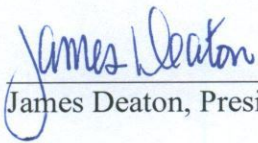 James Deaton
James Deaton, Presi